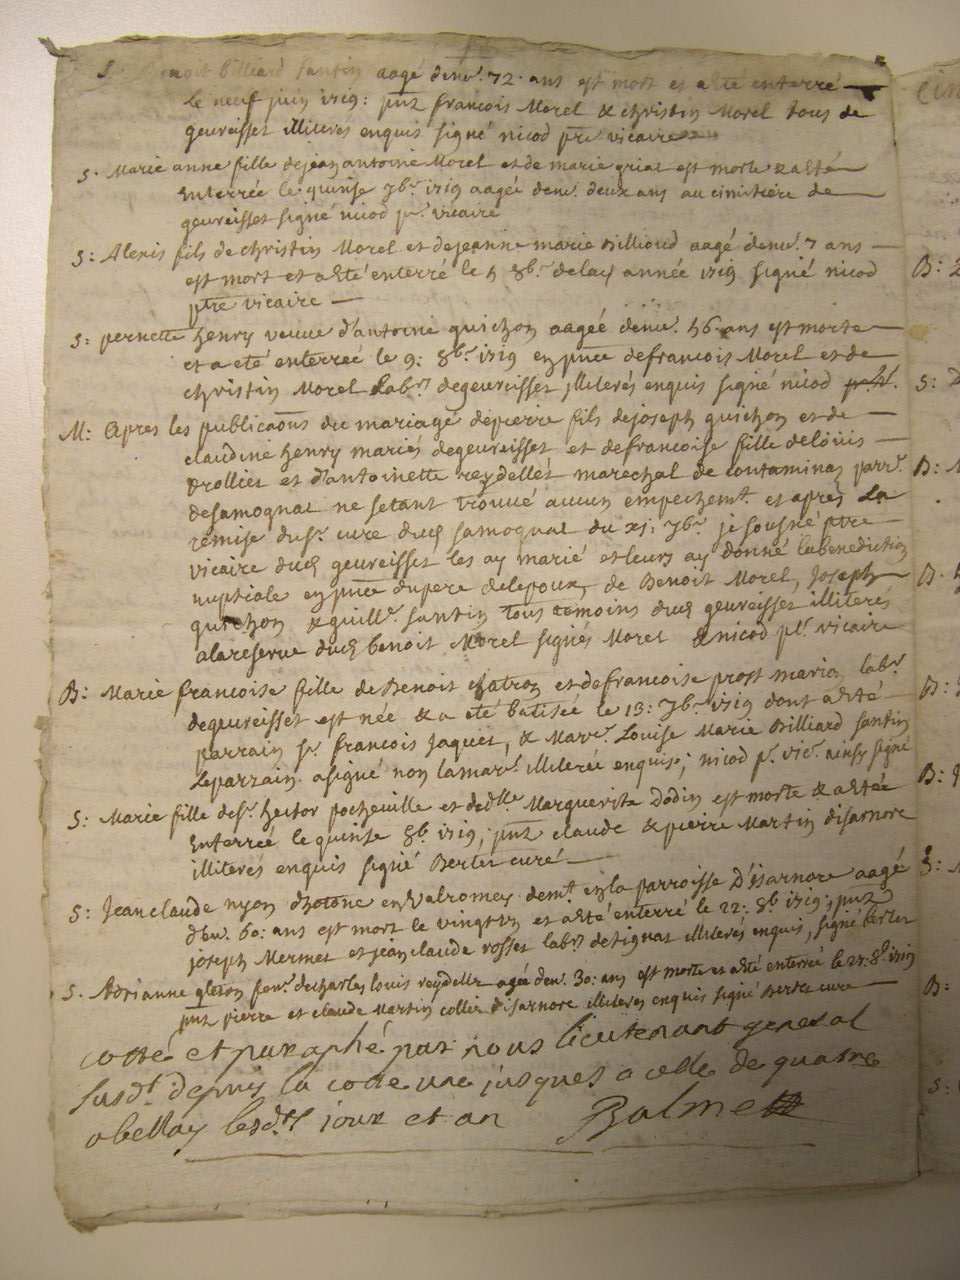 S. Benoit billiard santin aagé denv. 72. ans est mort et a eté enterré
le neuf juin 1719: pnt francois Morel & christin Morel tous de
geureisset illiterés enquis signé nicod ptre vicaire
S. Marie anne fille de jean antoine Morel et de marie griat est morte & a eté
Enterrée le quinse 7br. 1719 aagée denv. deux ans au cimitiere de
geureisset signé nicod pr. vicaire
S: Alexis fils de christin Morel et de jeanne marie Billioud aagé denv. 7 ans
est mort et a eté enterré le 5 8br. de lad. année 1719 signé nicod
ptre vicaire
S: pernette henry veuve d'antoine guichon aagée denv. 56. ans est morte
et a eté enterreé le 9: 8br. 1719 en pnce de francois Morel et de
christin Morel Labrs. de geureisset illiterés enquis signé nicod
M: Apres les publicaons du mariage de pierre fils de joseph guichon et de
claudine henry mariés de geureisset et de francoise fille de loüis
drollies et d'antoinette reydellet marechal de contaminaz parr.
de samognat ne setant trouvé aucun empechemt. et apres La
remise du sr. cure dud samognat du xi: 7br. je sousné ptre
vicaire dud geureisset les ay marié et leurs ay donné la benediction
nuptiale en pnce du pere de lepoux, de Benoit Morel, Joseph
guichon & guille. santin tous temoins dud geureisset illiterés
a la reserve dud benoit Morel signés Morel & nicod pr. vicaire
B: Marie francoise fille de Benoit chatron et de francoise prost marion labr.
de geureisset est née & a eté batisée le 13: 7br. 1719 dont a eté
parrain sr. francois Jaquet, & Marr. Louise Marie Billiard santin
Le parrain a signé non la marr. illiterée enquise; nicod pr. vicr. ainsy signé
S: Marie fille de sr. hector pocheuille et de dlle Marguerite Dodin est morte & a etée
Enterreé le quinse 8br 1719; pnt claude & pierre Martin disarnore
illiterés enquis signé Bertet curé
S: Jean claude nyon d'hotone en Valromey demt. en la parroisse D'isarnore aagé
d'env. 60: ans est mort le vingt un et a eté enterré le 22: 8br 1719; pnt
joseph Mermet et jean claude rosset labrs de tignat illiterés enquis, signé bertet
S. Adrianne gleton fem. de charles louis reydellet agée denv. 30: ans est morte et a eté enterrée le 27: 8br. 1719
pnt pierre et claude Martin collet disarnore illiterés enquis signé Bertet cure
cotté et paraphé par nous lieutenant general
susdt. depuis la cotte une jusques a celle de quatre
a bellay lesdts jour et an Balme